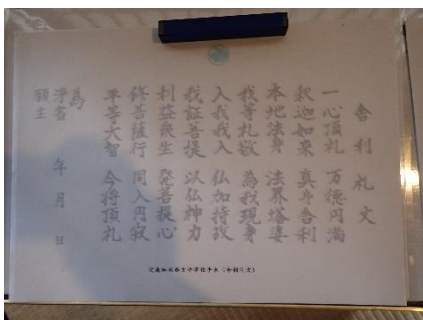 舎利礼文
一心頂礼 万徳円満
釈迦如来 真身舎利
本地法身 法界塔婆
我等礼敬 為我現身
入我我入 仏加持故
我証菩提 以仏神力
利益衆生 発菩提心
修菩薩行 同入円寂
平等大智 今将頂礼
為
浄書 年 月 日
願主
（舎利礼文）